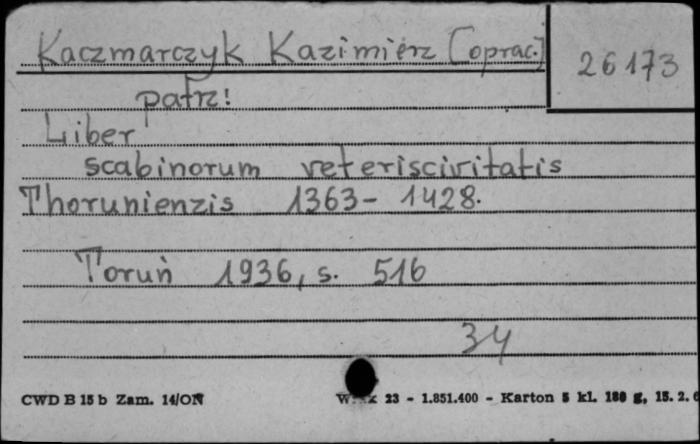 Kaczmarczyk Kazimierz [oprac.]
26173
patrz!
Liber
scabinorum veteriscivitatis
Thoruniensis 1363-1428.
Toruń 1936, s. 516
34
CWD B 15 b Zam. 14/ON
23 - 1.851.400 - Karton 5 kl. 180 g, 15. 2.